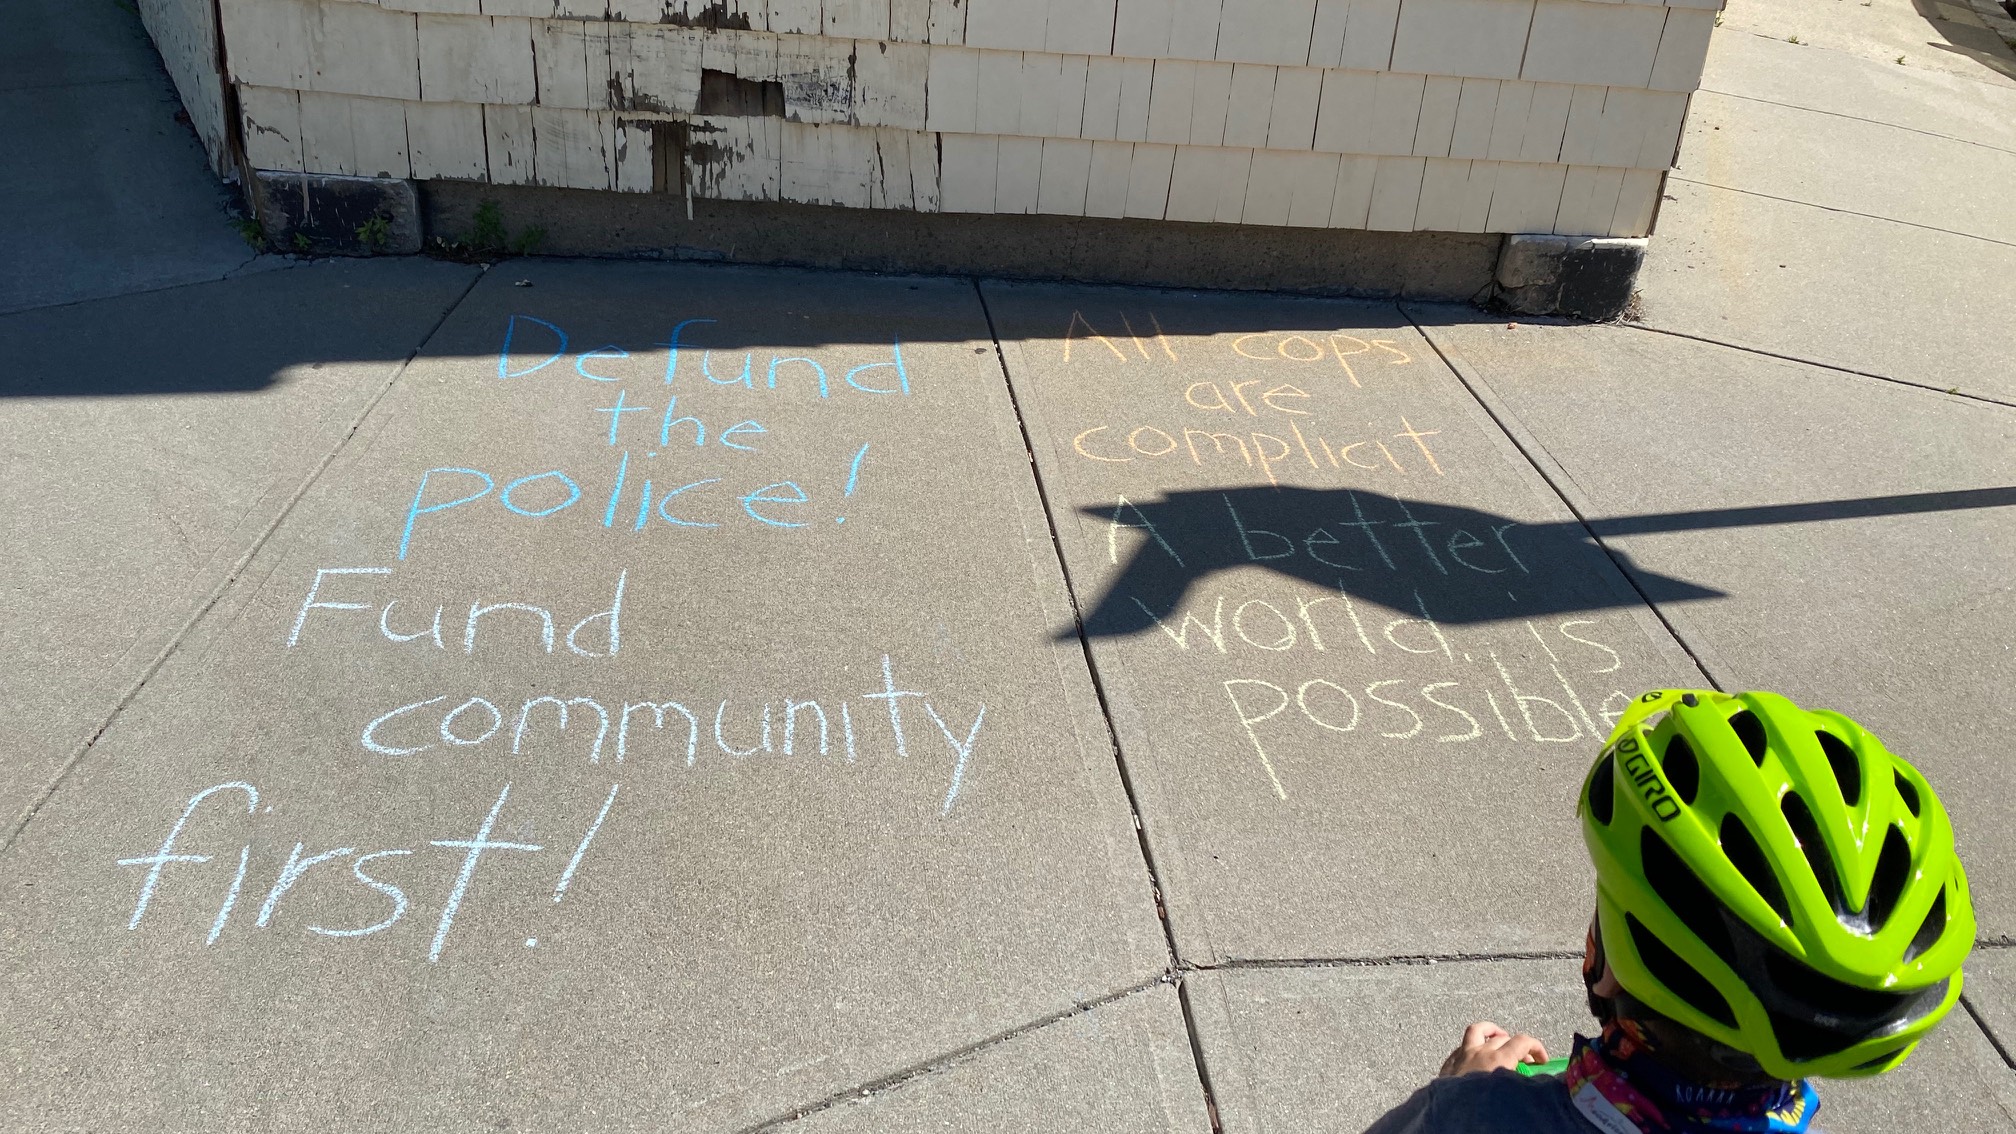 Defund
the
police!
Fund
community
first!
All cops
are
complicit
A better
world is
possible
GIRO